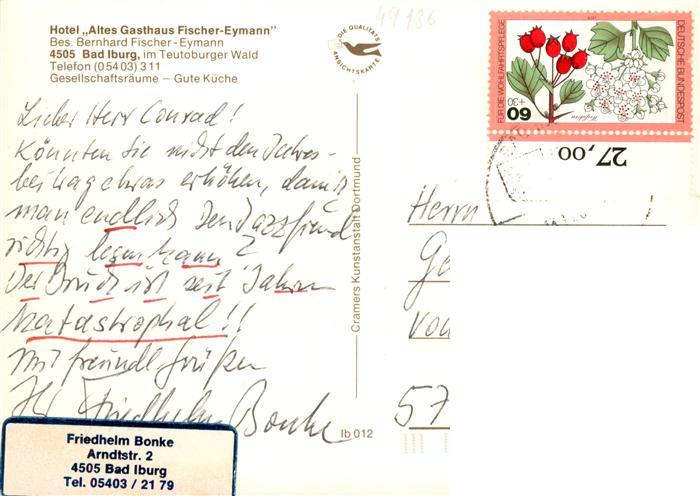 Hotel „Altes Gasthaus Fischer-Eymann"
Bes. Bernhard Fischer-Eymann
4505 Bad Iburg, im Teutoburger Wald
Telefon (05403) 311
Gesellschaftsräume – Gute Küche
DIE QUALITÄTS
ANSICHTSKARTE
49186
DEUTSCHE BUNDESPOST
FÜR DIE WOHLFAHRTSPFLEGE
60
+30
27,00
Lieber Herr Conrad!
Könnten Sie nicht den Jahres-
beitrag etwas erhöhen, damit
man endlich den Jazzfreund
richtig lesen kann?
Der Druck ist seit Jahren
katastrophal!!
Mit freundl Grüßen
Ihr Friedhelm Bonke
Cramers Kunstanstalt Dortmund
Ib 012
Herrn
57
Friedhelm Bonke
Arndtstr. 2
4505 Bad Iburg
Tel. 05403 / 21 79